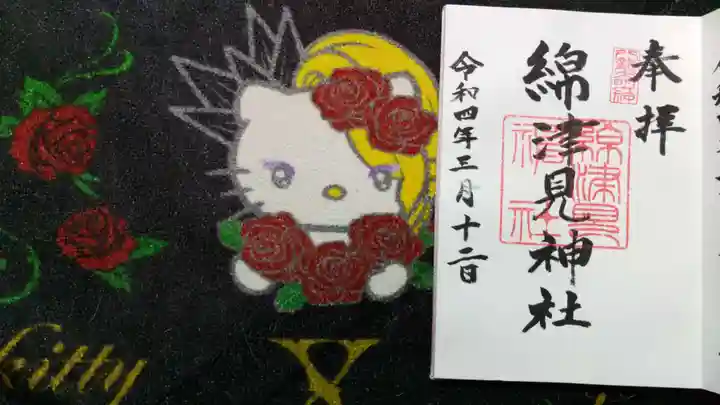 奉拝
綿津見神社
令和四年三月十二日
kitty
X